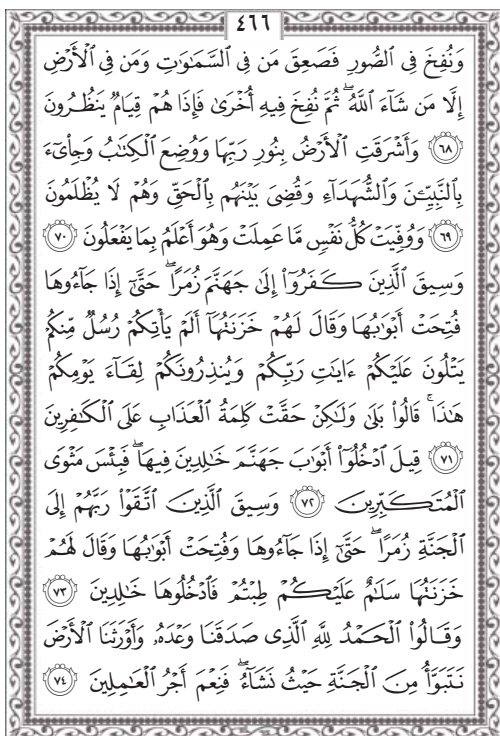 ٤٦٦
وَنُفِخَ فِي ٱلصُّورِ فَصَعِقَ مَن فِي ٱلسَّمَٰوَٰتِ وَمَن فِي ٱلْأَرْضِ
إِلَّا مَن شَآءَ ٱللَّهُۖ ثُمَّ نُفِخَ فِيهِ أُخْرَىٰ فَإِذَا هُمْ قِيَامٌ يَنظُرُونَ
٦٨ وَأَشْرَقَتِ ٱلْأَرْضُ بِنُورِ رَبِّهَا وَوُضِعَ ٱلْكِتَٰبُ وَجِا۟يٓءَ
بِٱلنَّبِيِّـۧنَ وَٱلشُّهَدَآءِ وَقُضِيَ بَيْنَهُم بِٱلْحَقِّ وَهُمْ لَا يُظْلَمُونَ
٦٩ وَوُفِّيَتْ كُلُّ نَفْسٍ مَّا عَمِلَتْ وَهُوَ أَعْلَمُ بِمَا يَفْعَلُونَ ٧٠
وَسِيقَ ٱلَّذِينَ كَفَرُوٓا۟ إِلَىٰ جَهَنَّمَ زُمَرًاۖ حَتَّىٰٓ إِذَا جَآءُوهَا
فُتِحَتْ أَبْوَٰبُهَا وَقَالَ لَهُمْ خَزَنَتُهَآ أَلَمْ يَأْتِكُمْ رُسُلٌ مِّنكُمْ
يَتْلُونَ عَلَيْكُمْ ءَايَٰتِ رَبِّكُمْ وَيُنذِرُونَكُمْ لِقَآءَ يَوْمِكُمْ
هَٰذَاۚ قَالُوا۟ بَلَىٰ وَلَٰكِنْ حَقَّتْ كَلِمَةُ ٱلْعَذَابِ عَلَى ٱلْكَٰفِرِينَ
٧١ قِيلَ ٱدْخُلُوٓا۟ أَبْوَٰبَ جَهَنَّمَ خَٰلِدِينَ فِيهَاۖ فَبِئْسَ مَثْوَى
ٱلْمُتَكَبِّرِينَ ٧٢ وَسِيقَ ٱلَّذِينَ ٱتَّقَوْا۟ رَبَّهُمْ إِلَى
ٱلْجَنَّةِ زُمَرًاۖ حَتَّىٰٓ إِذَا جَآءُوهَا وَفُتِحَتْ أَبْوَٰبُهَا وَقَالَ لَهُمْ
خَزَنَتُهَا سَلَٰمٌ عَلَيْكُمْ طِبْتُمْ فَٱدْخُلُوهَا خَٰلِدِينَ ٧٣
وَقَالُوا۟ ٱلْحَمْدُ لِلَّهِ ٱلَّذِي صَدَقَنَا وَعْدَهُۥ وَأَوْرَثَنَا ٱلْأَرْضَ
نَتَبَوَّأُ مِنَ ٱلْجَنَّةِ حَيْثُ نَشَآءُۖ فَنِعْمَ أَجْرُ ٱلْعَٰمِلِينَ ٧٤